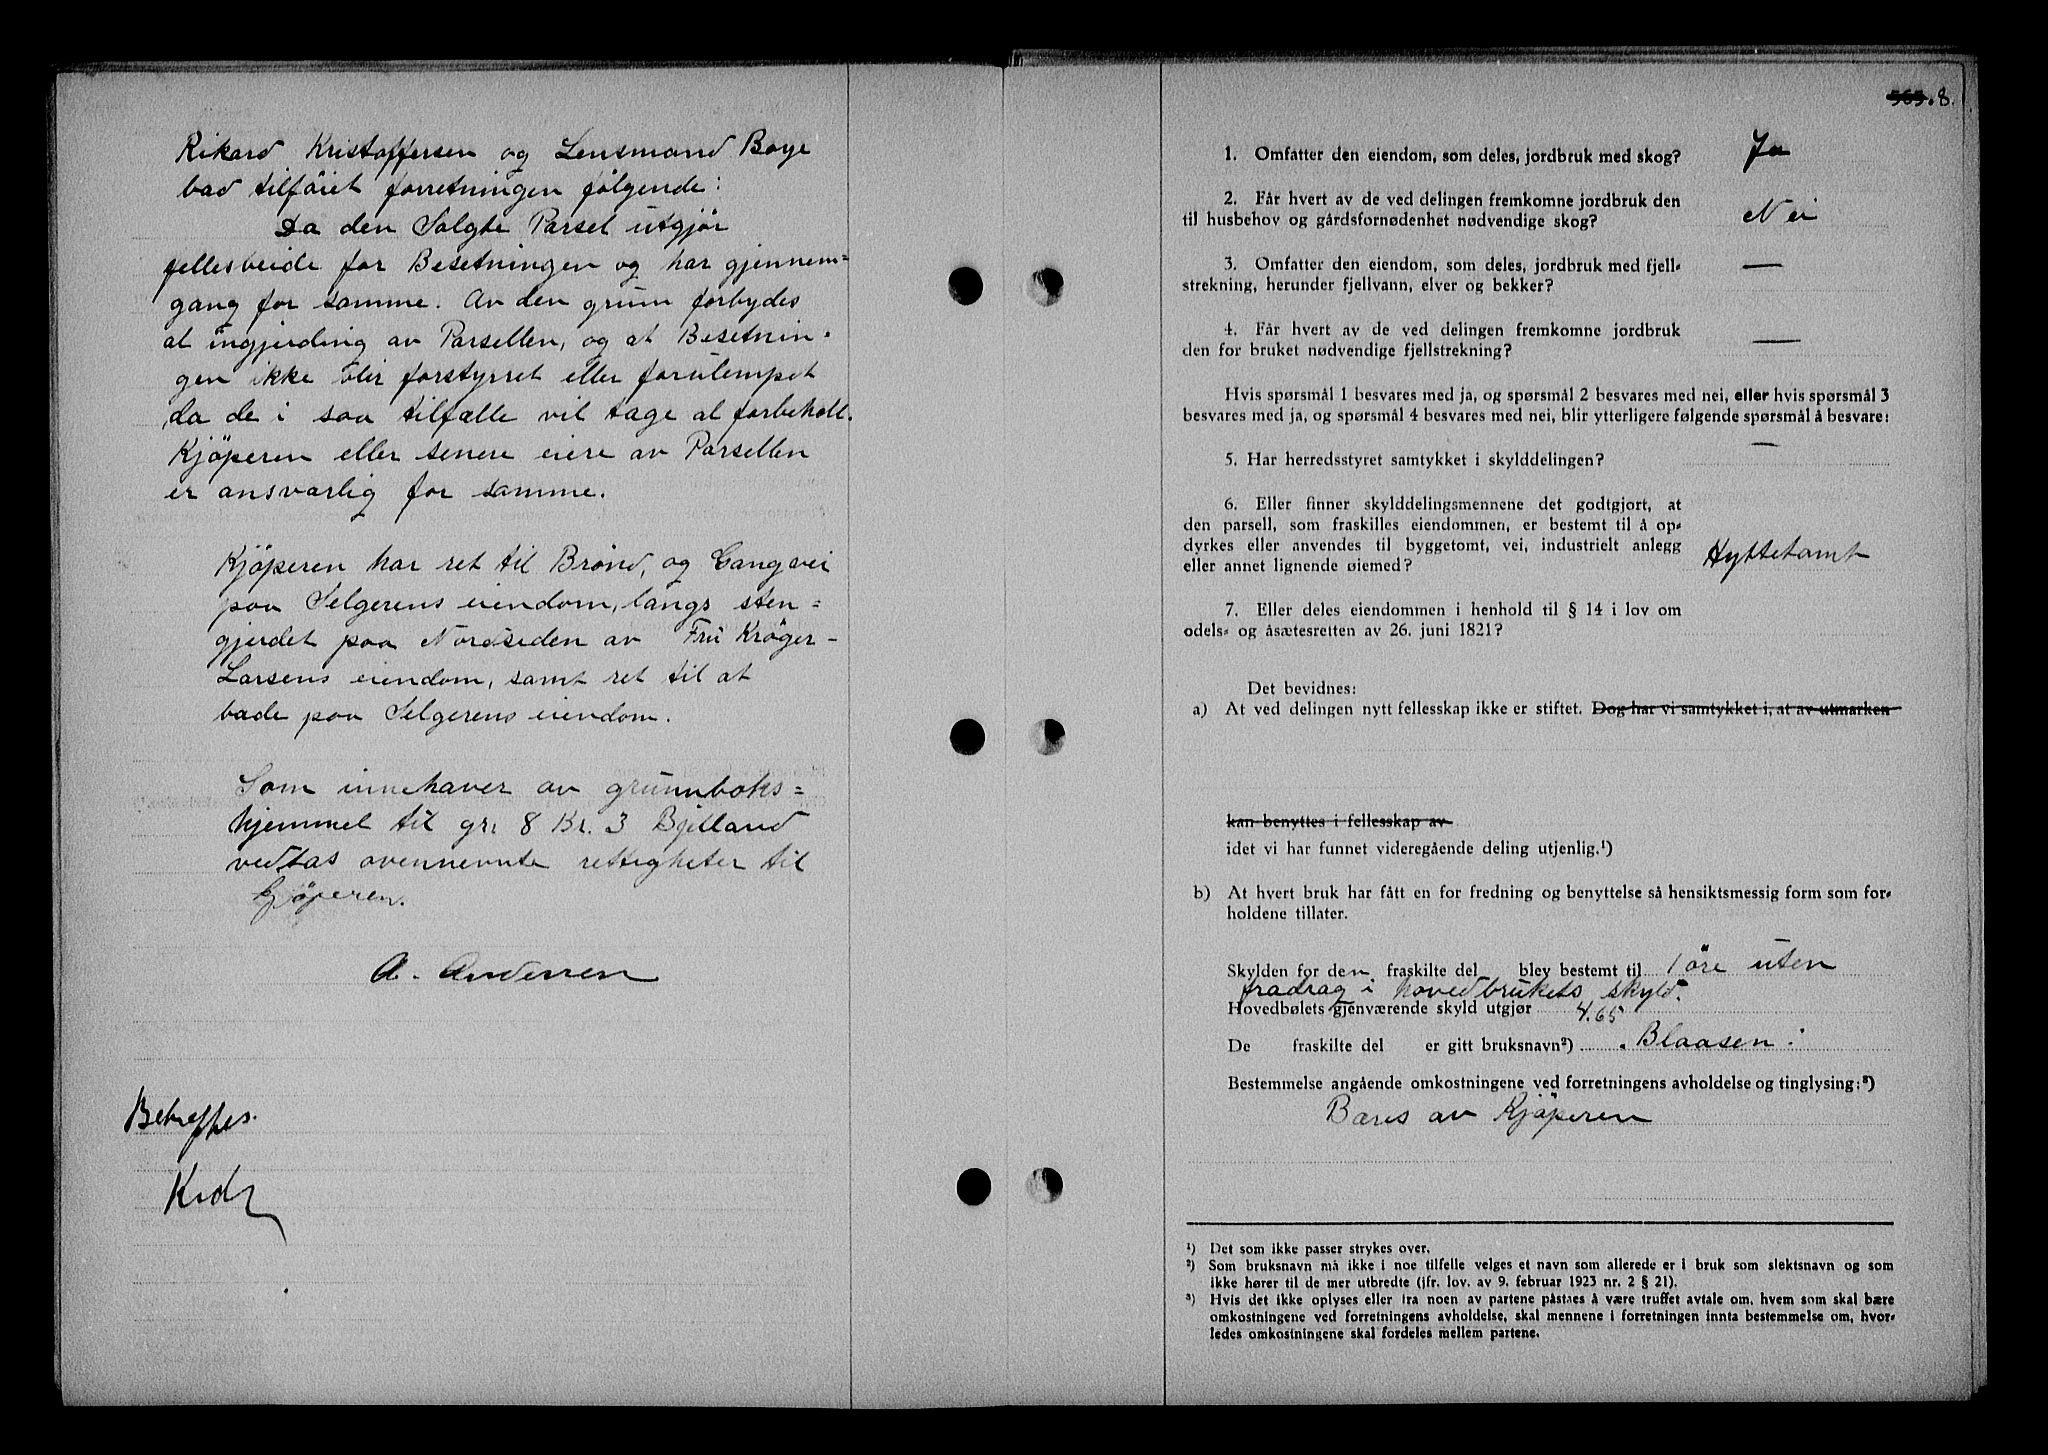 Rikard Kristoffersen og Lensmand Boye
bad tilføiet forretningen følgende:
Da den Solgte Parsel utgjør
fellesbeide for Besetningen og har gjennem=
gang for samme. Av den grunn forbydes
al ingjerding av Parsellen, og at Besetnin=
gen ikke blir forstyrret eller forulempet
da de i saa tilfælle vil tage al forbehold.
Kjöperen eller senere eiere av Parsellen
er ansvarlig for samme.
Kjöperen har ret til Brønd, og Gangvei
paa Selgerens eiendom, langs sten=
gjerdet paa Nordsiden av Fru Kröger-
Larsens eiendom, samt ret til at
bade paa Selgerens eiendom.
Som innehaver av grunnboks=
hjemmel til gr. 8 Br. 3 Bjelland
vedtas ovennevnte rettigheter til
Kjöperen.
A. Andersen
Bekreftes.
565. 8.
1. Omfatter den eiendom, som deles, jordbruk med skog? Ja
2. Får hvert av de ved delingen fremkomne jordbruk den
til husbehov og gårdsfornødenhet nødvendige skog? Nei
3. Omfatter den eiendom, som deles, jordbruk med fjell-
strekning, herunder fjellvann, elver og bekker? —
4. Får hvert av de ved delingen fremkomne jordbruk
den for bruket nødvendige fjellstrekning? —
Hvis spørsmål 1 besvares med ja, og spørsmål 2 besvares med nei, eller hvis spørsmål 3
besvares med ja, og spørsmål 4 besvares med nei, blir ytterligere følgende spørsmål å besvare:
5. Har herredsstyret samtykket i skylddelingen? —
6. Eller finner skylddelingsmennene det godtgjort, at
den parsell, som fraskilles eiendommen, er bestemt til å op-
dyrkes eller anvendes til byggetomt, vei, industrielt anlegg
eller annet lignende øiemed? Hyttetomt
7. Eller deles eiendommen i henhold til § 14 i lov om
odels- og åsætesretten av 26. juni 1821?
Det bevidnes:
a) At ved delingen nytt fellesskap ikke er stiftet. Dog har vi samtykket i, at av utmarken
kan benyttes i fellesskap av
idet vi har funnet videregående deling utjenlig.¹)
b) At hvert bruk har fått en for fredning og benyttelse så hensiktsmessig form som for-
holdene tillater.
Skylden for den fraskilte del blev bestemt til 1 öre uten
fradrag i hovedbrukets skyld.
Hovedbølets gjenværende skyld utgjør 4.65
De fraskilte del er gitt bruksnavn²) "Blaasen"
Bestemmelse angående omkostningene ved forretningens avholdelse og tinglysing:³)
Bæres av Kjöperen
¹) Det som ikke passer strykes over.
²) Som bruksnavn må ikke i noe tilfelle velges et navn som allerede er i bruk som slektsnavn og som
ikke hører til de mer utbredte (jfr. lov. av 9. februar 1923 nr. 2 § 21).
³) Hvis det ikke oplyses eller fra noen av partene påstaes å være truffet avtale om, hvem som skal bære
omkostningene ved forretningens avholdelse, skal mennene i forretningen innta bestemmelse om, hvor-
ledes omkostningene skal fordeles mellem partene.